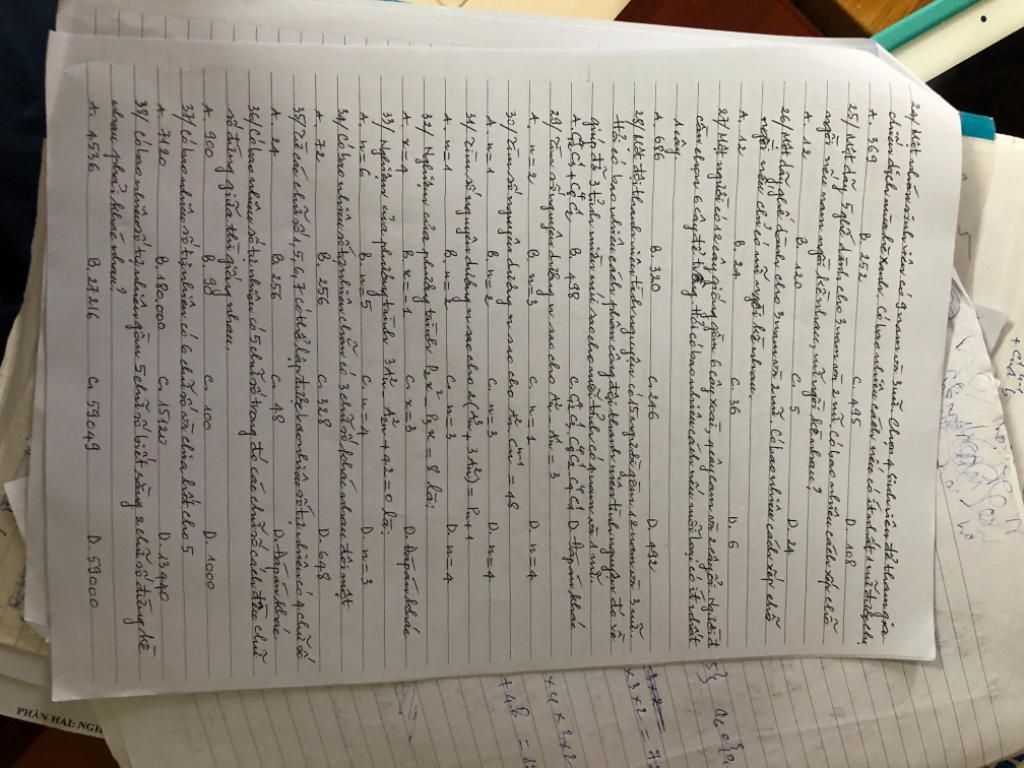 24/ Một nhóm sinh viên có 9 nam và 3 nữ. Chọn 4 sinh viên để tham gia
chiến dịch mùa hè xanh. Có bao nhiêu cách nếu có ít nhất 1 nữ được chọn
A. 369 B. 252 C. 495 D. 108
25/ Một dãy 5 ghế dành cho 3 nam và 2 nữ. Có bao nhiêu cách xếp chỗ
ngồi nếu nam ngồi kề nhau, nữ ngồi kề nhau?
A. 12 B. 120 C. 5 D. 24
26/ Một dãy ghế dành cho 3 nam và 2 nữ. Có bao nhiêu cách xếp chỗ
ngồi nếu chỉ có nữ ngồi kề nhau.
A. 12 B. 24 C. 36 D. 6
27/ Một người có 12 cây giống gồm 6 cây xoài, 4 cây cam và 2 cây ổi. Người ấy
cần chọn 6 cây để trồng. Hỏi có bao nhiêu cách nếu mỗi loại có ít nhất
1 cây.
A. 686 B. 320 C. 246 D. 492
28/ Một đội thanh niên tình nguyện có 15 người gồm 12 nam và 3 nữ.
Hỏi có bao nhiêu cách phân công đội thanh niên tình nguyện đó về
giúp đỡ 3 tỉnh miền núi sao cho mỗi tỉnh có 4 nam và 1 nữ
B. 498 D. Đáp án khác
29/ Tìm số nguyên dương n sao cho = 3
A. n = 2 B. n = 3 C. n = 1 D. n = 4
30/ Tìm số nguyên dương n sao cho = 48
A. n = 1 B. n = 2 C. n = 3 D. n = 4
31/ Tìm số nguyên dương n sao cho
A. n = 1 B. n = 2 C. n = 3 D. n = 4
32/ Nghiệm của phương trình P₂x² - P₃x = 8 là:
A. x = 4 B. x = -1 C. x = 3 D. Đáp án khác
33/ Nghiệm của phương trình + 42 = 0 là:
A. n = 6 B. n = 5 C. n = 4 D. n = 3
34/ Có bao nhiêu số tự nhiên chẵn có 3 chữ số khác nhau đôi một
A. 72 B. 256 C. 328 D. 648
35/ Từ các chữ số 1, 5, 6, 7 có thể lập được bao nhiêu số tự nhiên có 4 chữ số
A. 24 B. 256 C. 48 D. Đáp án khác
36/ Có bao nhiêu số tự nhiên có 5 chữ số trong đó các chữ số cách đều chữ
số đứng giữa thì giống nhau.
A. 900 B. 90 C. 100 D. 1000
37/ Có bao nhiêu số tự nhiên có 6 chữ số và chia hết cho 5
A. 7120 B. 180000 C. 15120 D. 13440
38/ Có bao nhiêu số tự nhiên gồm 5 chữ số biết rằng 2 chữ số đứng kề
nhau phải khác nhau?
A. 4536 B. 27216 C. 59049 D. 59000
PHẦN HAI: